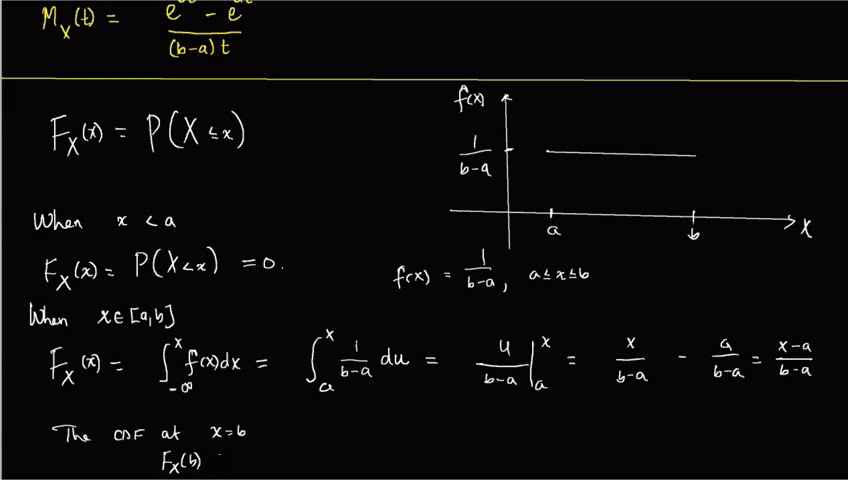 M_X(t) = (e^ − e^) / (b-a)t
F_X(x) = P(X ≤ x)
f(x)
1/(b-a)
a b X
When x < a
F_X(x) = P(X < x) = 0.
f(x) = 1/(b-a), a ≤ x ≤ b
When x ∈ [a,b]
F_X(x) = ∫_{-∞}^{x} f(x)dx = ∫_{a}^{x} 1/(b-a) du = u/(b-a) |_{a}^{x} = x/(b-a) - a/(b-a) = (x-a)/(b-a)
The CDF at x=b
F_X(b)